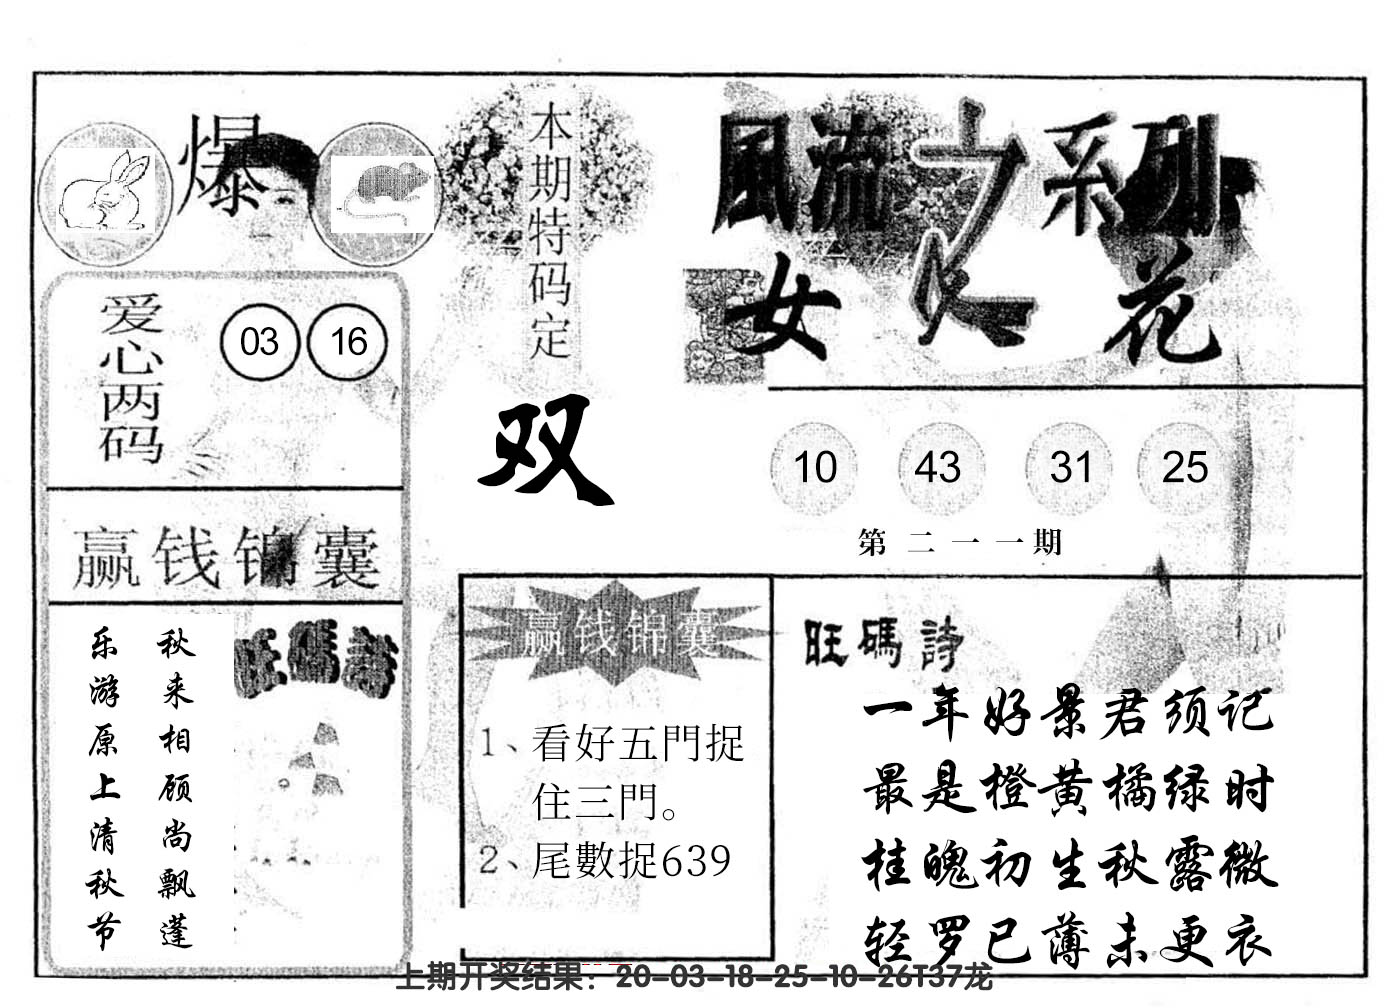 爆
本期特码定
双
風流之系列
女人花
爱心两码
03 16
10 43 31 25
第二一一期
赢钱锦囊
旺碼詩
秋来相顾尚飘蓬
乐游原上清秋节
赢钱锦囊
1、看好五門捉
住三門。
2、尾數捉639
旺碼詩
一年好景君须记
最是橙黄橘绿时
桂魄初生秋露微
轻罗已薄未更衣
上期开奖结果：20-03-18-25-10-26T37龙